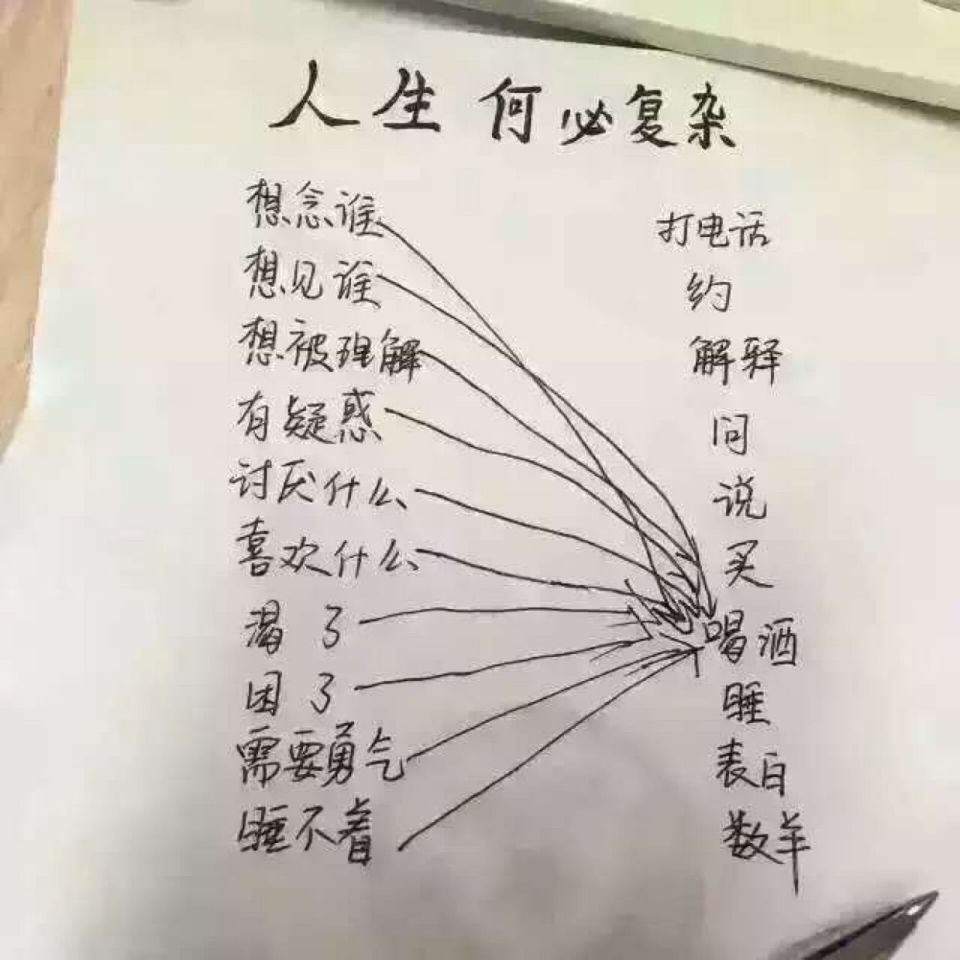 人生何必复杂
想念谁 打电话
想见谁 约
想被理解 解释
有疑惑 问
讨厌什么 说
喜欢什么 买
渴了 喝酒
困了 睡
需要勇气 表白
睡不着 数羊